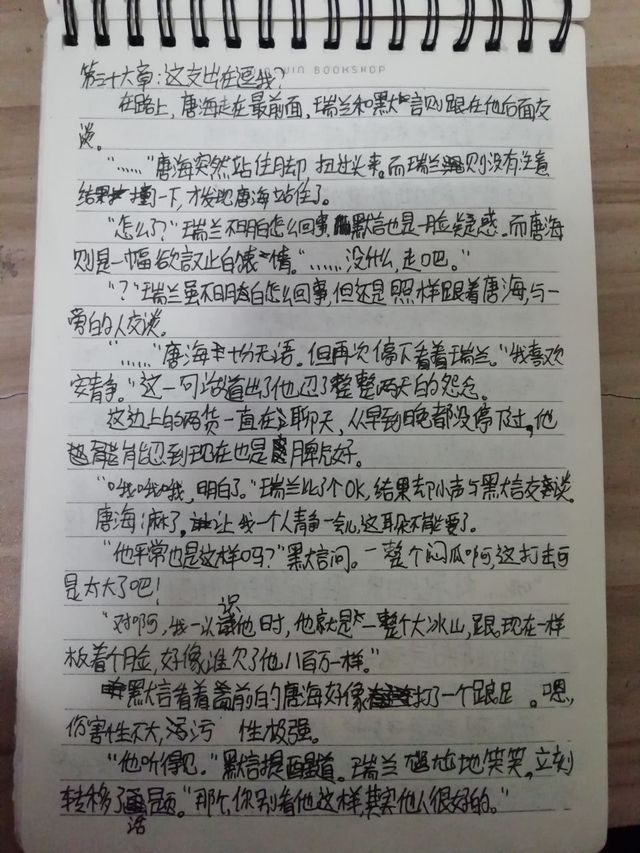 WIN BOOKSHOP
第三十六章：这支出在逗我？
在路上，唐海走在最前面，瑞兰和默言则跟在他后面交
谈。
“……”唐海突然站住脚，扭过头来。而瑞兰则没有注意
结果撞一下，才发现唐海站住了。
“怎么了？”瑞兰不明白怎么回事，默言也是一脸疑惑。而唐海
则是一幅欲言又止的表情。“……没什么，走吧。”
“？”瑞兰虽不明白怎么回事，但还是照样跟着唐海，与一
旁的人交谈。
“……”唐海十分无语。但再次停下看着瑞兰。“我喜欢
安静。”这一句道出了他忍了整整两天的怨念。
这边上的两货一直在聊天，从早到晚都没停下过，他
能忍到现在也是脾气好。
“哦哦哦，明白了。”瑞兰比了个OK，结果却小声与默言交谈。
唐海：麻了，让我一个人静一会儿，这耳朵不能要了。
“他平常也是这样吗？”默言问。一整个闷瓜啊，这打击可
是太大了吧！
“对啊，我一认识他时，他就是一整个大冰山，跟现在一样
板着个脸，好像谁欠了他八百万一样。”
默言看着前的唐海好像打了一个踉跄。嗯，
伤害性不大，性极强。
“他听得见。”默言提醒道。瑞兰尴尬地笑笑，立刻
转移了话题。“那个，你别看他这样，其实他人很好的。”